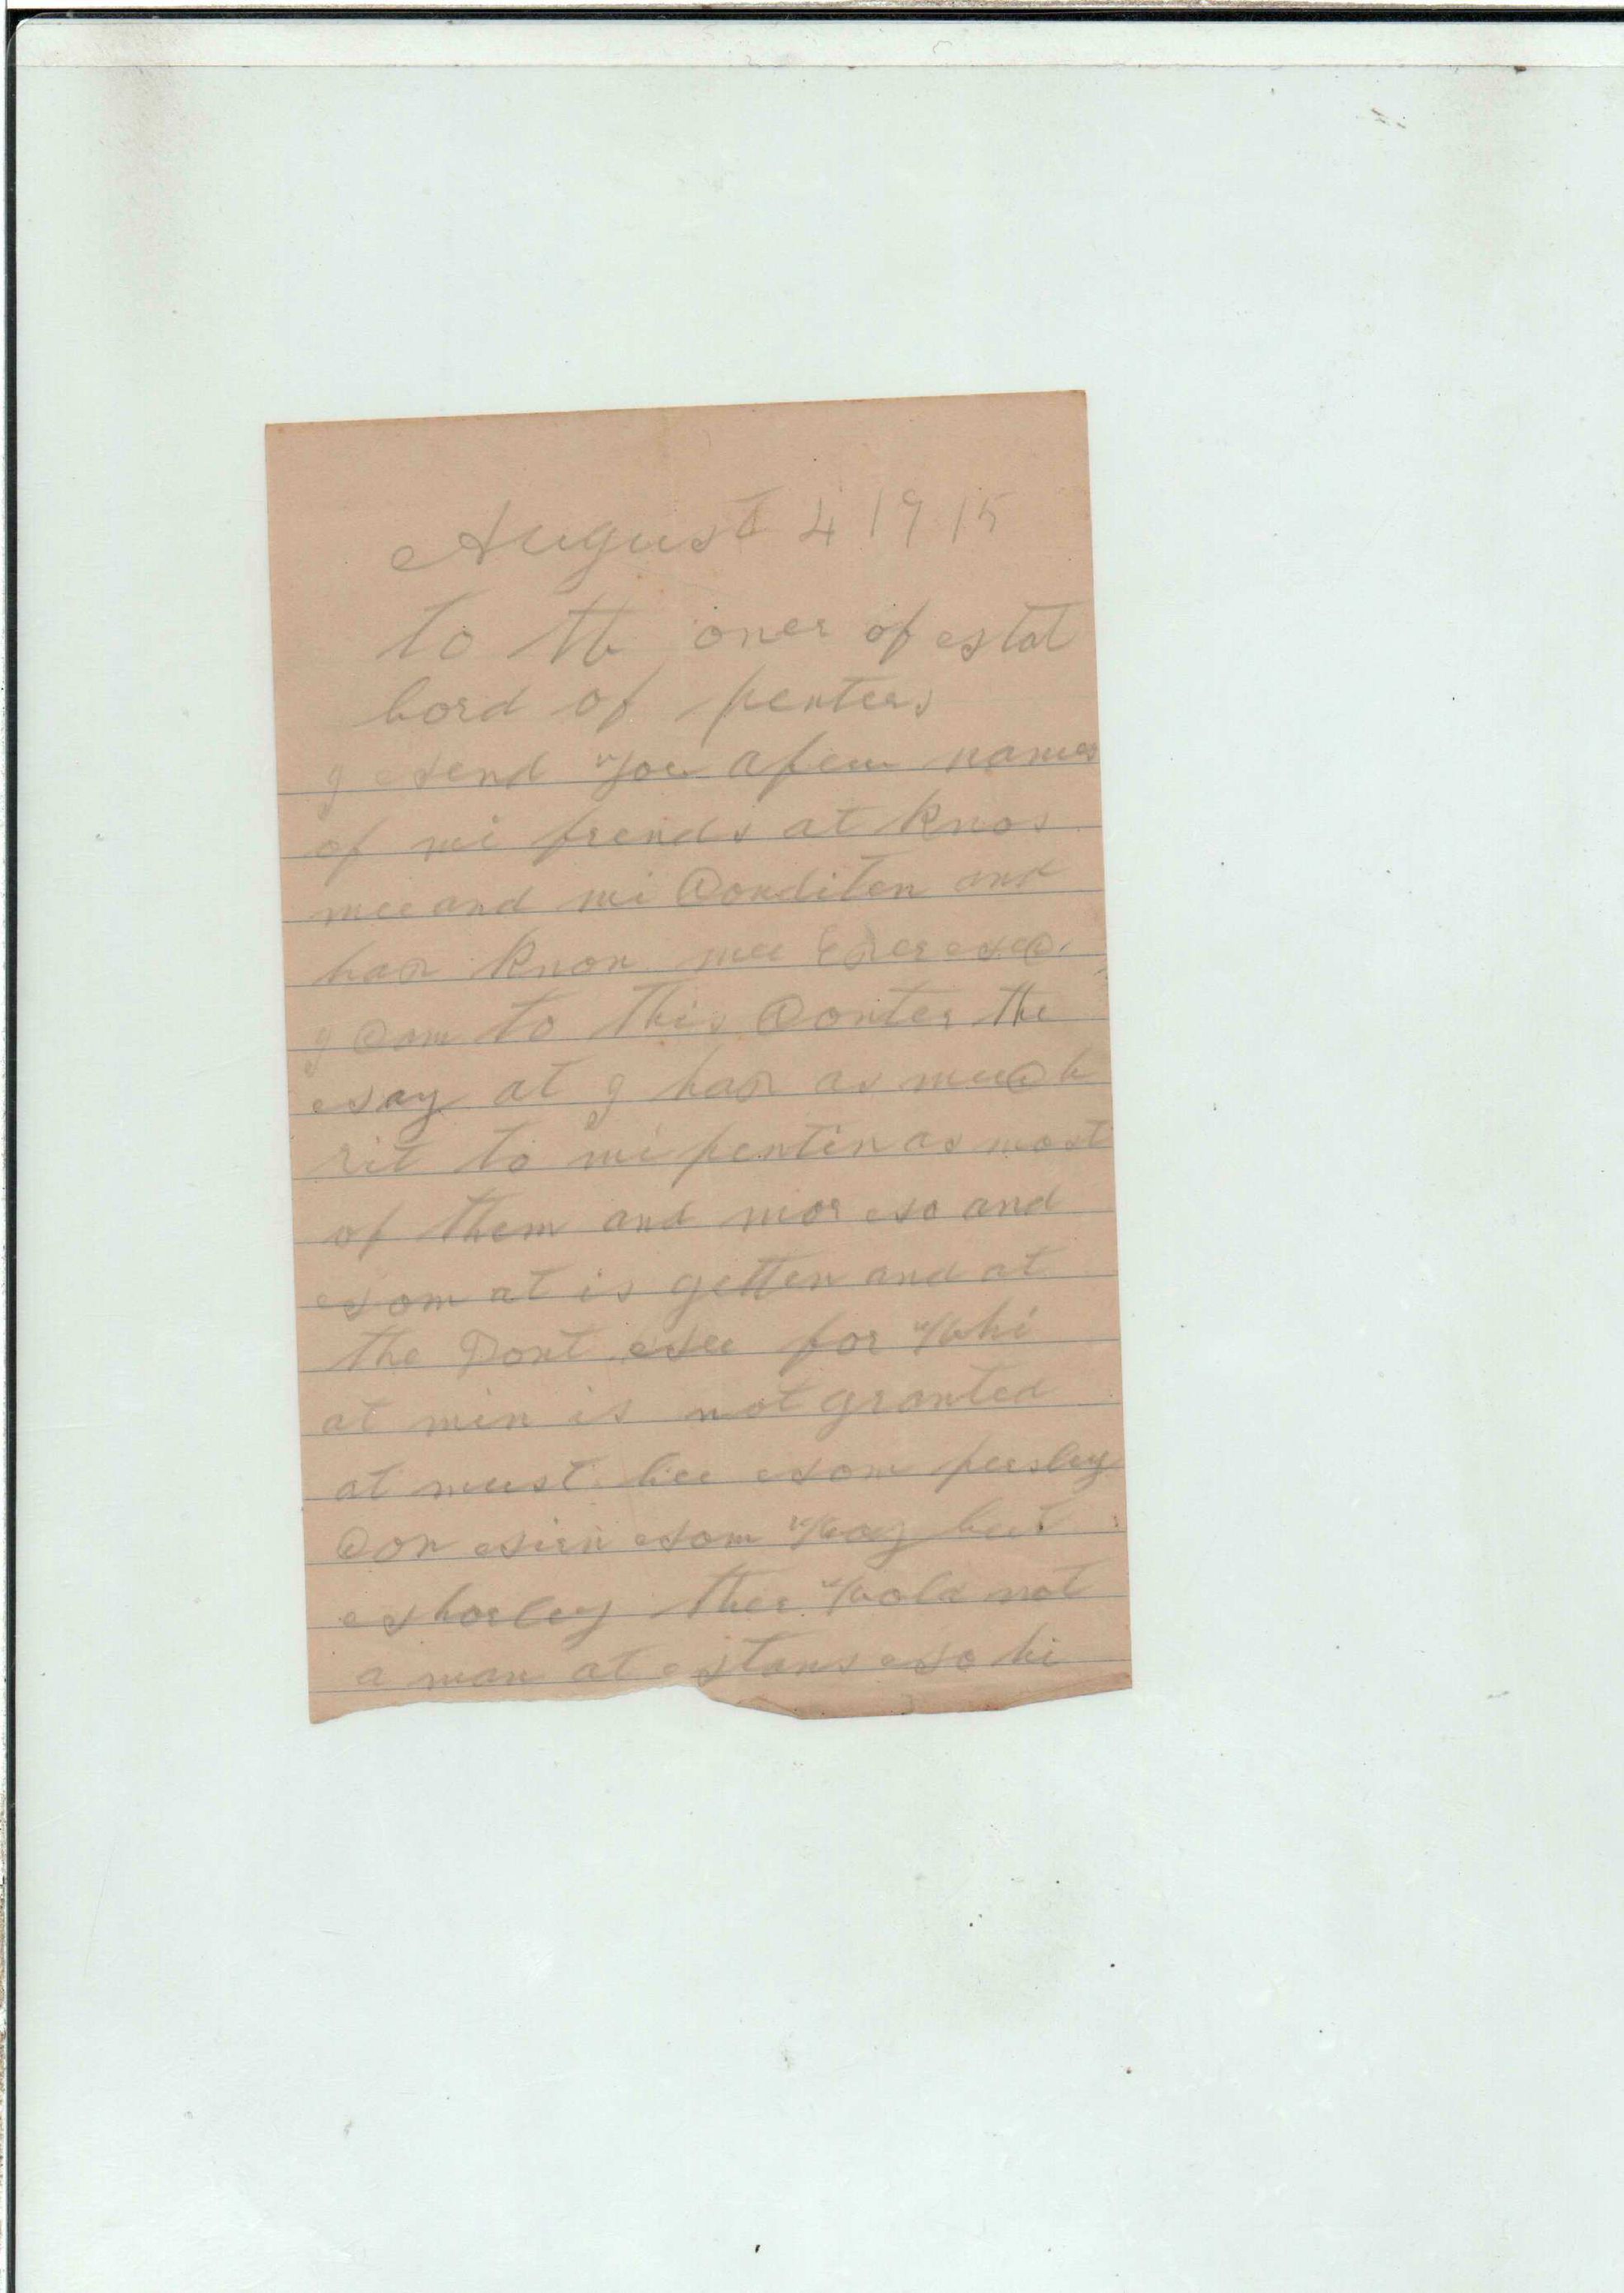 August 4 1915
to th oner of estat
bord of penters
I send you a few names
of mi frends at knos
mee and mi Conditen and
hav knon mee Ever esec
I Com to this Conter the
say at I hav as much
rit to mi pentin as most
of them and mor so and
som at is getten and at
the Dont see for whi
at min is not granted
at must bee som peesley
Con sirn som way but
shorley ther wold not
a man at stans so hi